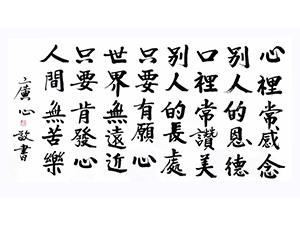 心裡常感念
別人的恩德
口裡常讚美
別人的長處
只要有願心
世界無遠近
只要肯發心
人間無苦樂
廣心敬書